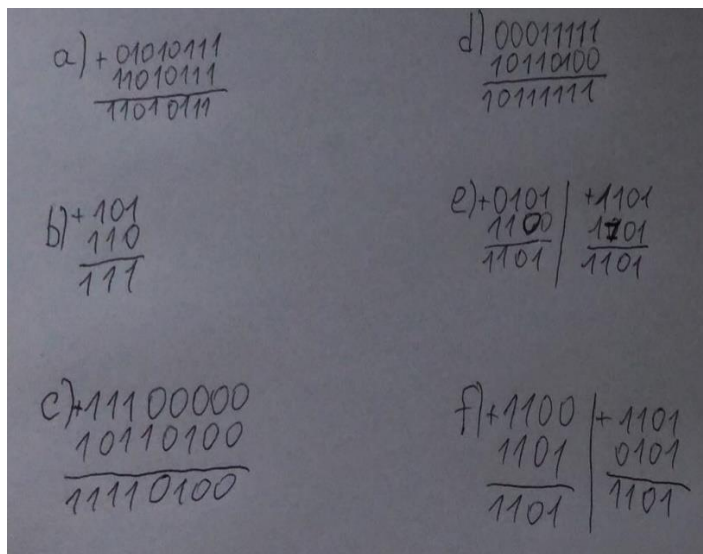 a) + 01010111
11010111
11010111
b) + 101
110
111
c) + 11100000
10110100
11110100
d) 00011111
10110100
10111111
e) + 0101 | + 1101
1100 | 1101
1101 | 1101
f) + 1100 | + 1101
1101 | 0101
1101 | 1101